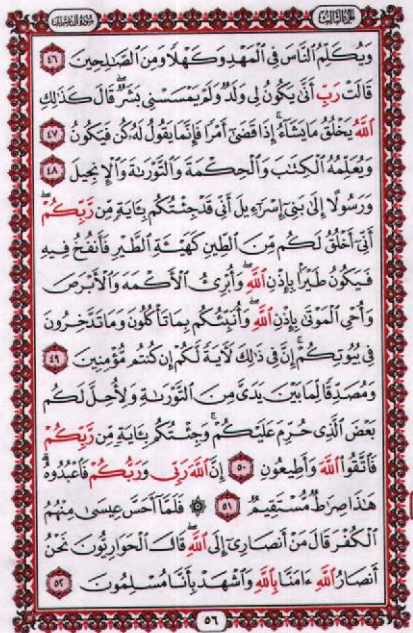 الجزء الثالث سورة آل عمران
وَيُكَلِّمُ النَّاسَ فِي الْمَهْدِ وَكَهْلًا وَمِنَ الصَّالِحِينَ ٤٦
قَالَتْ رَبِّ أَنَّىٰ يَكُونُ لِي وَلَدٌ وَلَمْ يَمْسَسْنِي بَشَرٌ ۖ قَالَ كَذَٰلِكِ
اللَّهُ يَخْلُقُ مَا يَشَاءُ ۚ إِذَا قَضَىٰ أَمْرًا فَإِنَّمَا يَقُولُ لَهُ كُن فَيَكُونُ ٤٧
وَيُعَلِّمُهُ الْكِتَابَ وَالْحِكْمَةَ وَالتَّوْرَىٰةَ وَالْإِنجِيلَ ٤٨
وَرَسُولًا إِلَىٰ بَنِي إِسْرَٰٓءِيلَ أَنِّي قَدْ جِئْتُكُم بِـَٔايَةٍ مِّن رَّبِّكُمْ ۖ
أَنِّي أَخْلُقُ لَكُم مِّنَ الطِّينِ كَهَيْـَٔةِ الطَّيْرِ فَأَنفُخُ فِيهِ
فَيَكُونُ طَيْرًا بِإِذْنِ اللَّهِ ۖ وَأُبْرِئُ الْأَكْمَهَ وَالْأَبْرَصَ
وَأُحْيِ الْمَوْتَىٰ بِإِذْنِ اللَّهِ ۖ وَأُنَبِّئُكُم بِمَا تَأْكُلُونَ وَمَا تَدَّخِرُونَ
فِي بُيُوتِكُمْ ۚ إِنَّ فِي ذَٰلِكَ لَآيَةً لَّكُمْ إِن كُنتُم مُّؤْمِنِينَ ٤٩
وَمُصَدِّقًا لِّمَا بَيْنَ يَدَيَّ مِنَ التَّوْرَىٰةِ وَلِأُحِلَّ لَكُم
بَعْضَ الَّذِي حُرِّمَ عَلَيْكُمْ ۚ وَجِئْتُكُم بِـَٔايَةٍ مِّن رَّبِّكُمْ
فَاتَّقُوا اللَّهَ وَأَطِيعُونِ ٥٠ إِنَّ اللَّهَ رَبِّي وَرَبُّكُمْ فَاعْبُدُوهُ ۗ
هَٰذَا صِرَٰطٌ مُّسْتَقِيمٌ ٥١ ۞ فَلَمَّا أَحَسَّ عِيسَىٰ مِنْهُمُ
الْكُفْرَ قَالَ مَنْ أَنصَارِي إِلَى اللَّهِ ۖ قَالَ الْحَوَارِيُّونَ نَحْنُ
أَنصَارُ اللَّهِ ءَامَنَّا بِاللَّهِ وَاشْهَدْ بِأَنَّا مُسْلِمُونَ ٥٢
٥٦